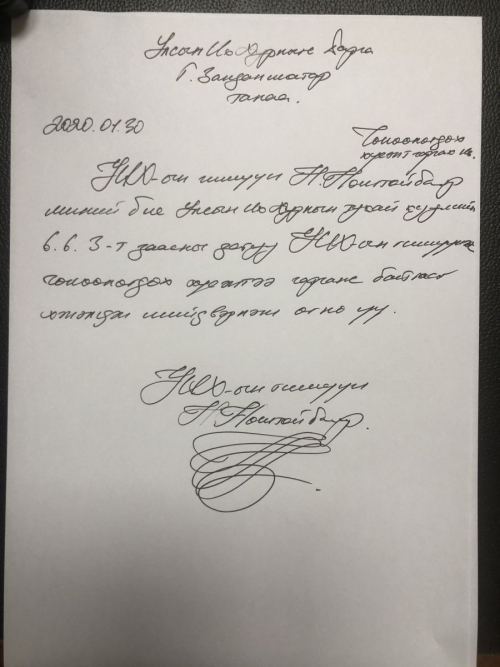 Улсын Их Хурлын дарга
Г. Занданшатар
танаа.
2020.01.30
Чөлөөлөгдөх
хүсэлт гаргах нь.
УИХ-ын гишүүн Н.Номтойбаяр
миний бие Улсын Их Хурлын тухай хуулийн
6.6.3-т заасны дагуу УИХ-ын гишүүнээс
чөлөөлөгдөх хүсэлтээ гаргаж байгааг
хүлээн шийдвэрлэж өгнө үү.
УИХ-ын гишүүн
Н.Номтойбаяр.